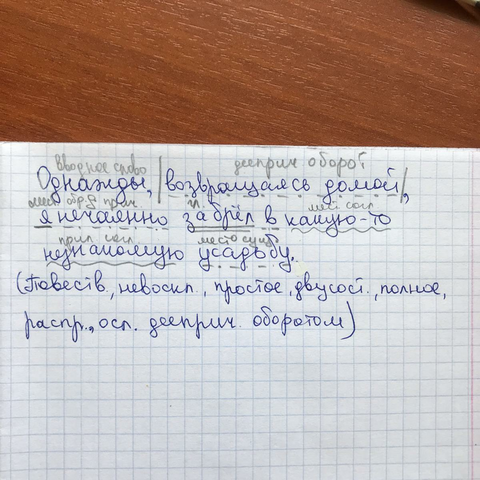 вводное слово дееприч оборот
Однажды, |возвращаясь домой|,
мест обр прич гл. мест согл
я нечаянно забрёл в какую-то
прил согл место сущ
незнакомую усадьбу.
(Повеств, невоскл., простое, двусост., полное,
распр., осл. дееприч. оборотом)